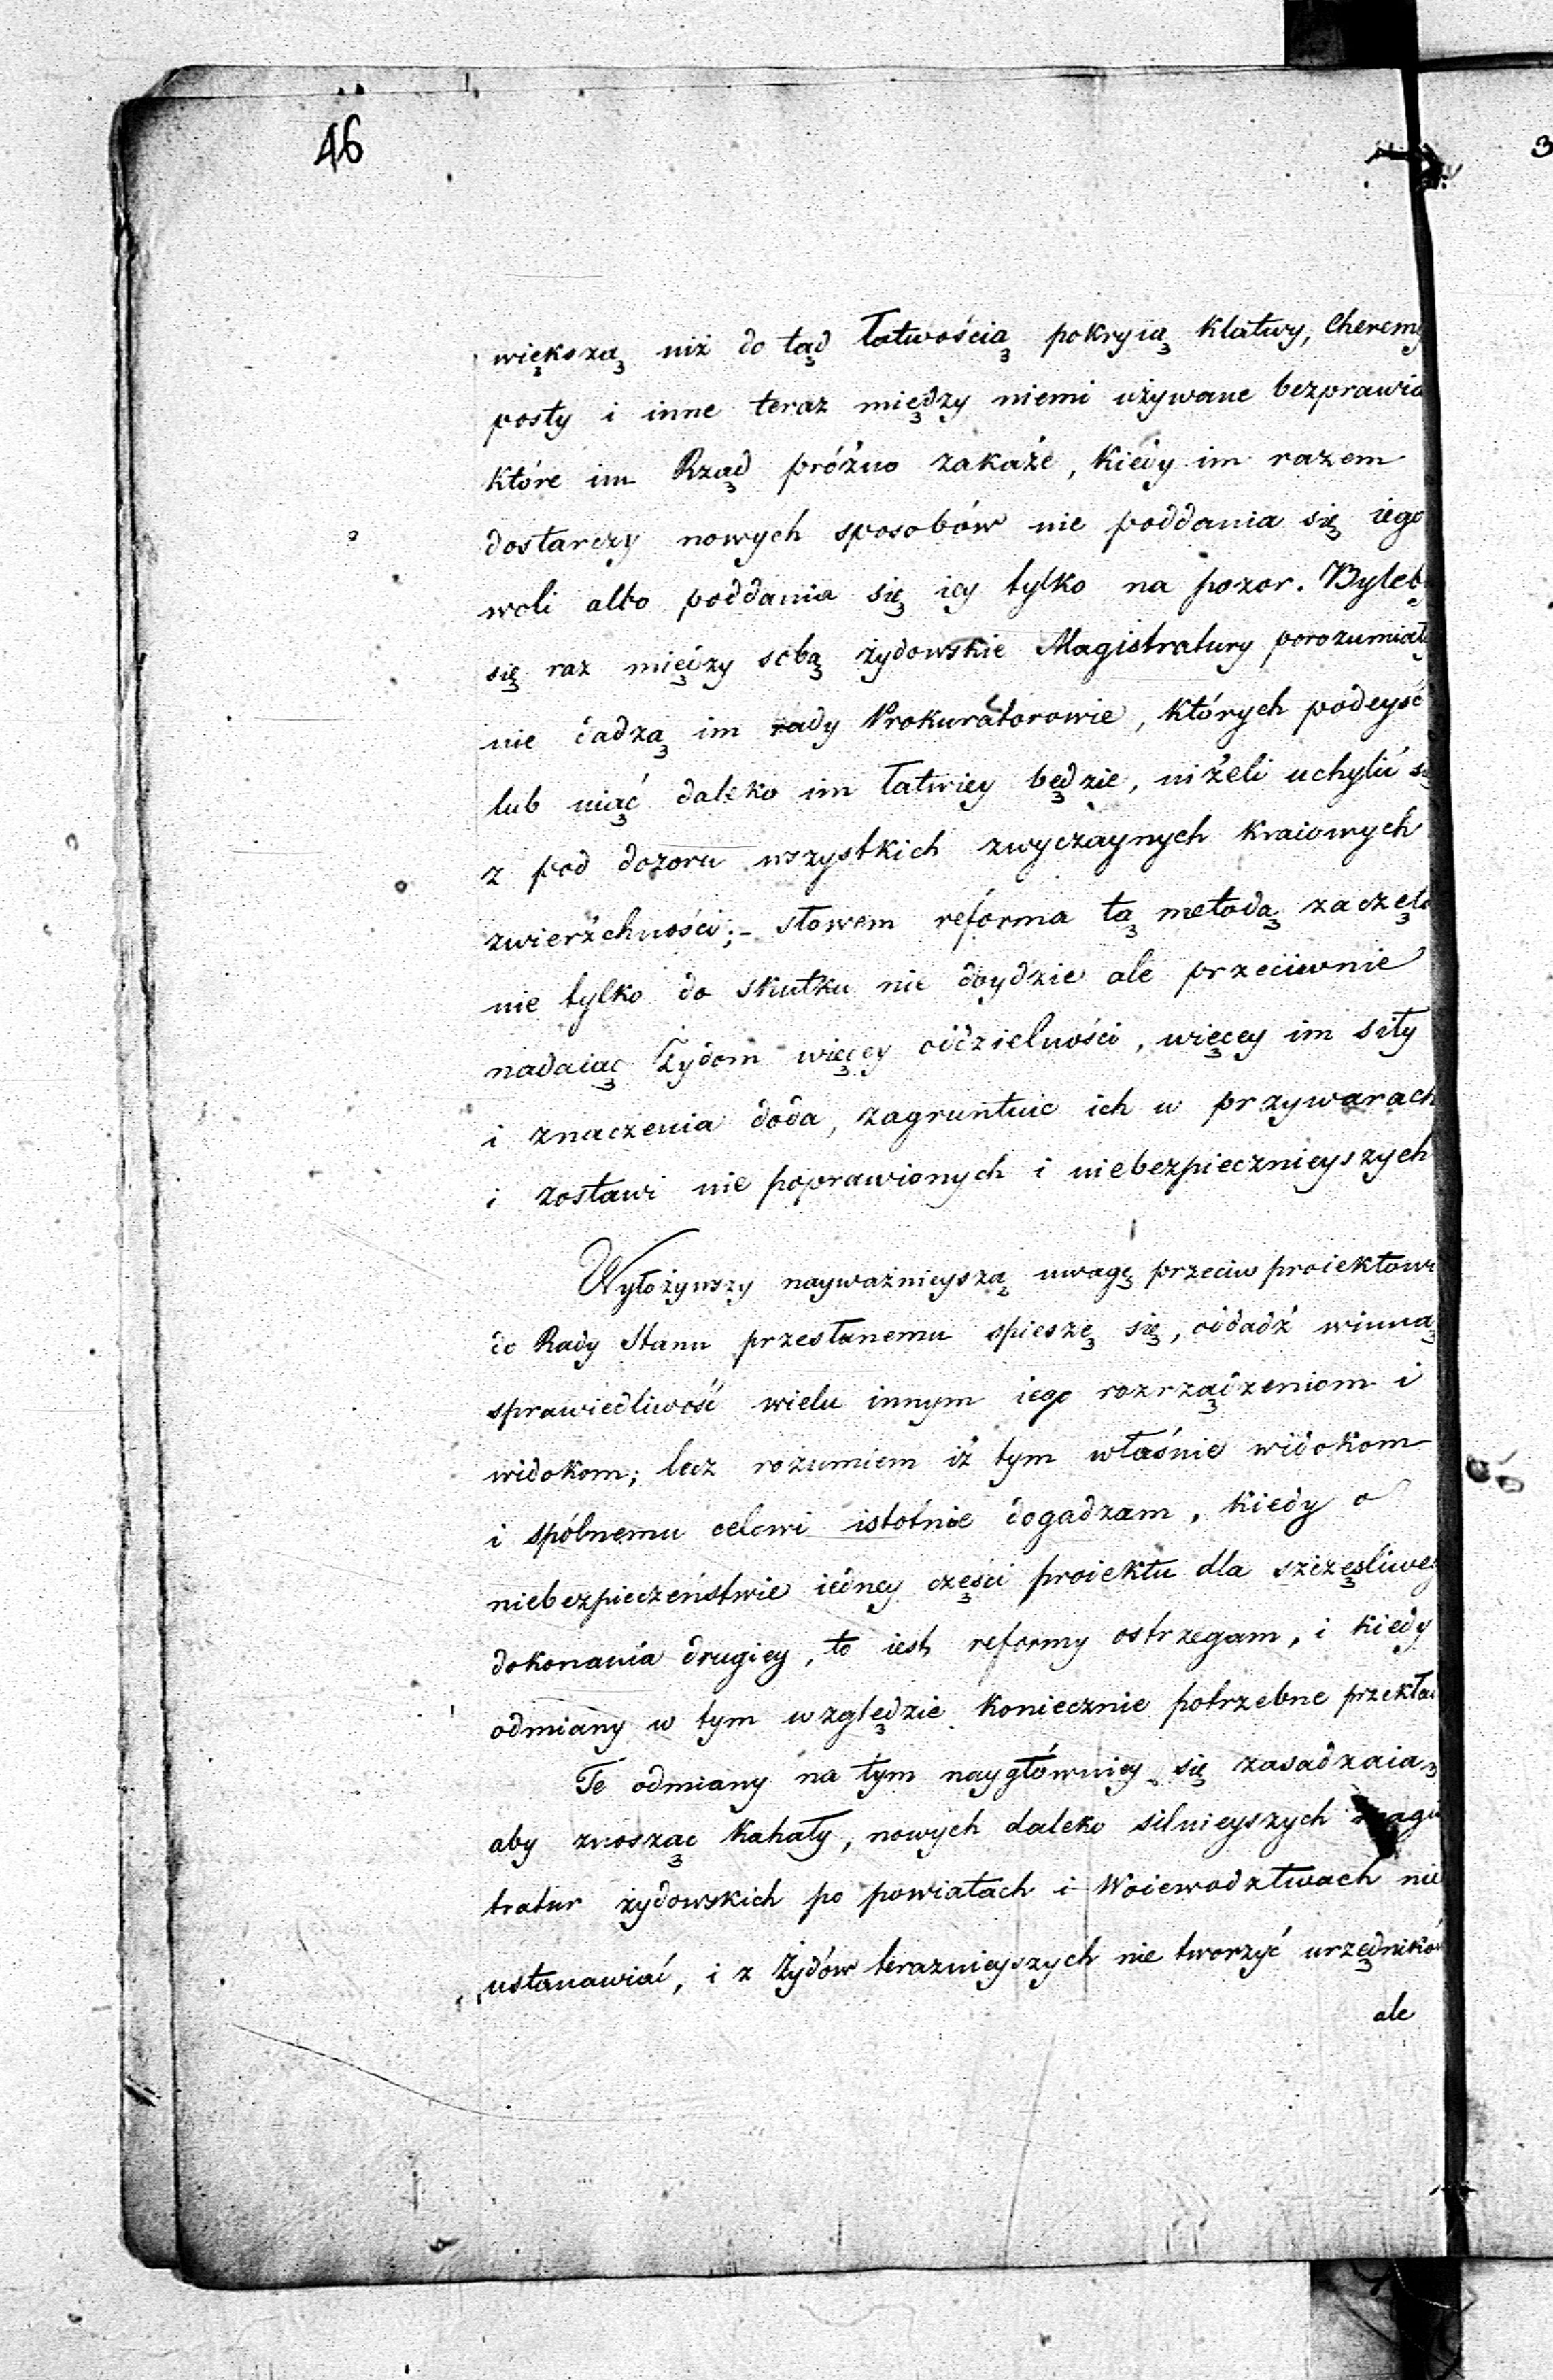 46
większą niż do tąd łatwością pokryią klatwy, Cheremy
posty i inne teraz między niemi używane bezprawia
które im Rząd próżno zakaże, kiedy im razem
dostarczy nowych sposobów nie poddania się iego
woli albo poddania się iey tylko na pozor. Byleby
się raz między sobą żydowskie Magistratury porozumiały
nie dadzą im rady Prokuratorowie, których podeyść
lub uiąć daleko im łatwiey będzie, niżeli uchylić się
z pod dozoru wszystkich zwyczaynych kraiowych
zwierżchności;- słowem reforma tą metodą zaczęta
nie tylko do skutku nie doydzie ale przeciwnie
nadaiąc Żydom więcey oddzielności, więcey im siły
i znaczenia doda, zagruntuie ich w przywarach
i zostawi nie poprawionych i niebezpiecznieyszych
Wyłożywszy nayważnieyszą uwagę przeciw proiektowi
do Rady Stanu przesłanemu spieszę się, oddadź winną
sprawiedliwość wielu innym iego rozrządzeniom i
widokom; lecz rozumiem iż tym właśnie widokom
i spólnemu celowi istotnie dogadzam, kiedy o
niebezpieczeństwie iedney części proiektu dla szczęśliwey
dokonania drugiey, to iest reformy ostrzegam, i kiedy
odmiany w tym względzie koniecznie potrzebne przekła
Te odmiany na tym naygłówniey się zasadzaią
aby znosząc Kahały, nowych daleko silnieyszych magis
tratur żydowskich po powiatach i Woiewodztwach nie
ustanawiać, i z Żydów teraznieyszych nie tworzyć urzędników
ale
3